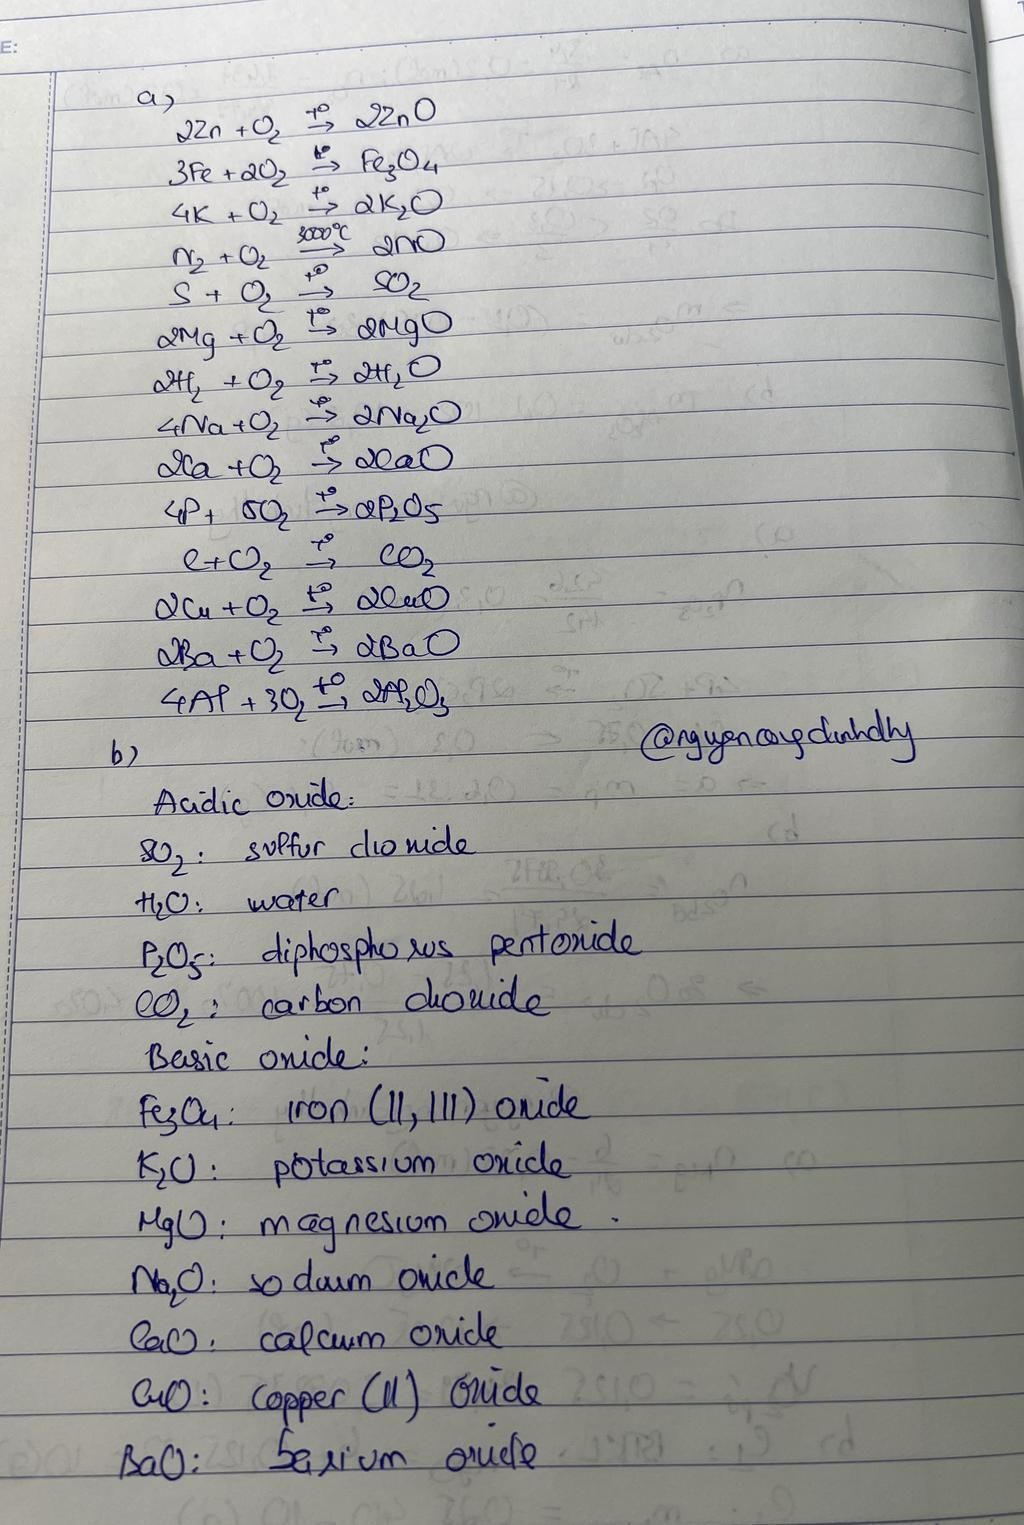 E:
a)
2Zn + O₂ →(t°) 2ZnO
3Fe + 2O₂ →(t°) Fe₃O₄
4K + O₂ →(t°) 2K₂O
N₂ + O₂ →(3000°C) 2NO
S + O₂ →(t°) SO₂
2Mg + O₂ →(t°) 2MgO
2H₂ + O₂ →(t°) 2H₂O
4Na + O₂ →(t°) 2Na₂O
2Ca + O₂ →(t°) 2CaO
4P + 5O₂ →(t°) 2P₂O₅
C + O₂ →(t°) CO₂
2Cu + O₂ →(t°) 2CuO
2Ba + O₂ →(t°) 2BaO
4Al + 3O₂ →(t°) 2Al₂O₃
@nguyencongdinhdhy
b)
Acidic oxide:
SO₂: sulfur dioxide
H₂O: water
P₂O₅: diphosphorus pentoxide
CO₂: carbon dioxide
Basic oxide:
Fe₃O₄: iron (II, III) oxide
K₂O: potassium oxide
MgO: magnesium oxide.
Na₂O: sodium oxide
CaO: calcium oxide
CuO: copper (II) oxide
BaO: barium oxide